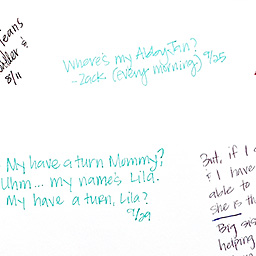 Jeans
&
8/11
Where's my Abby-Jan?
-Zack (every morning) 9/25
My have a turn Mommy?
Uhm... my name's Lila.
My have a turn, Lila?
9/29
But, if I
I have
able to
she is th
Big sis
helping